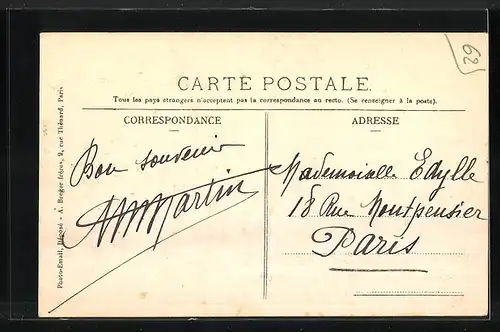 62
CARTE POSTALE.
Tous les pays étrangers n'acceptent pas la correspondance au recto. (Se renseigner à la poste).
CORRESPONDANCE
ADRESSE
Bon souvenir
AMMartin
Mademoiselle Edylle
18 Rue Montpensier
Paris
Photo-Email, Déposé - A. Berger frères, 9, rue Thénard, Paris